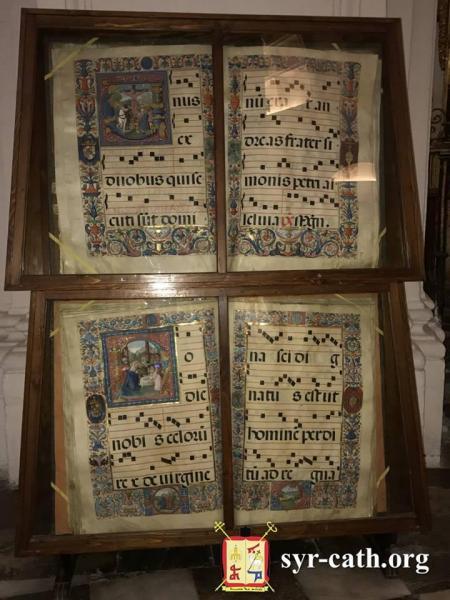 nus
ex
duobus qui se
cuti sūt domi
nū erat an
dreas frater si
monis petri al
leluia
o
die
nobi s celorū
re x de virgine
na sci di g
natu s est ut
hominē perdi
tū ad re gna
syr-cath.org